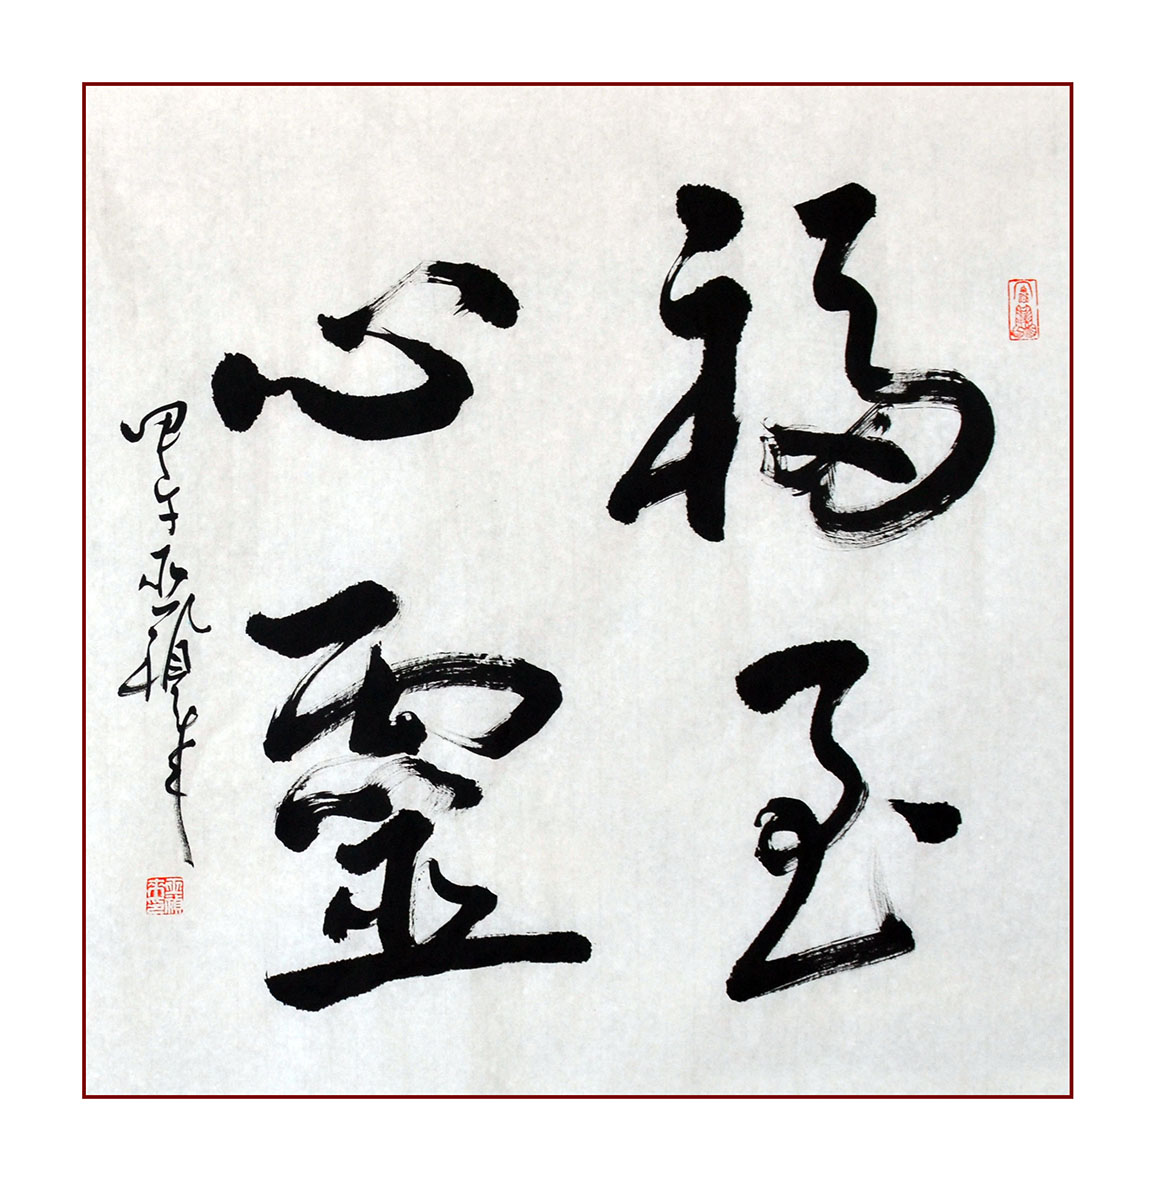 福至
心靈
甲午